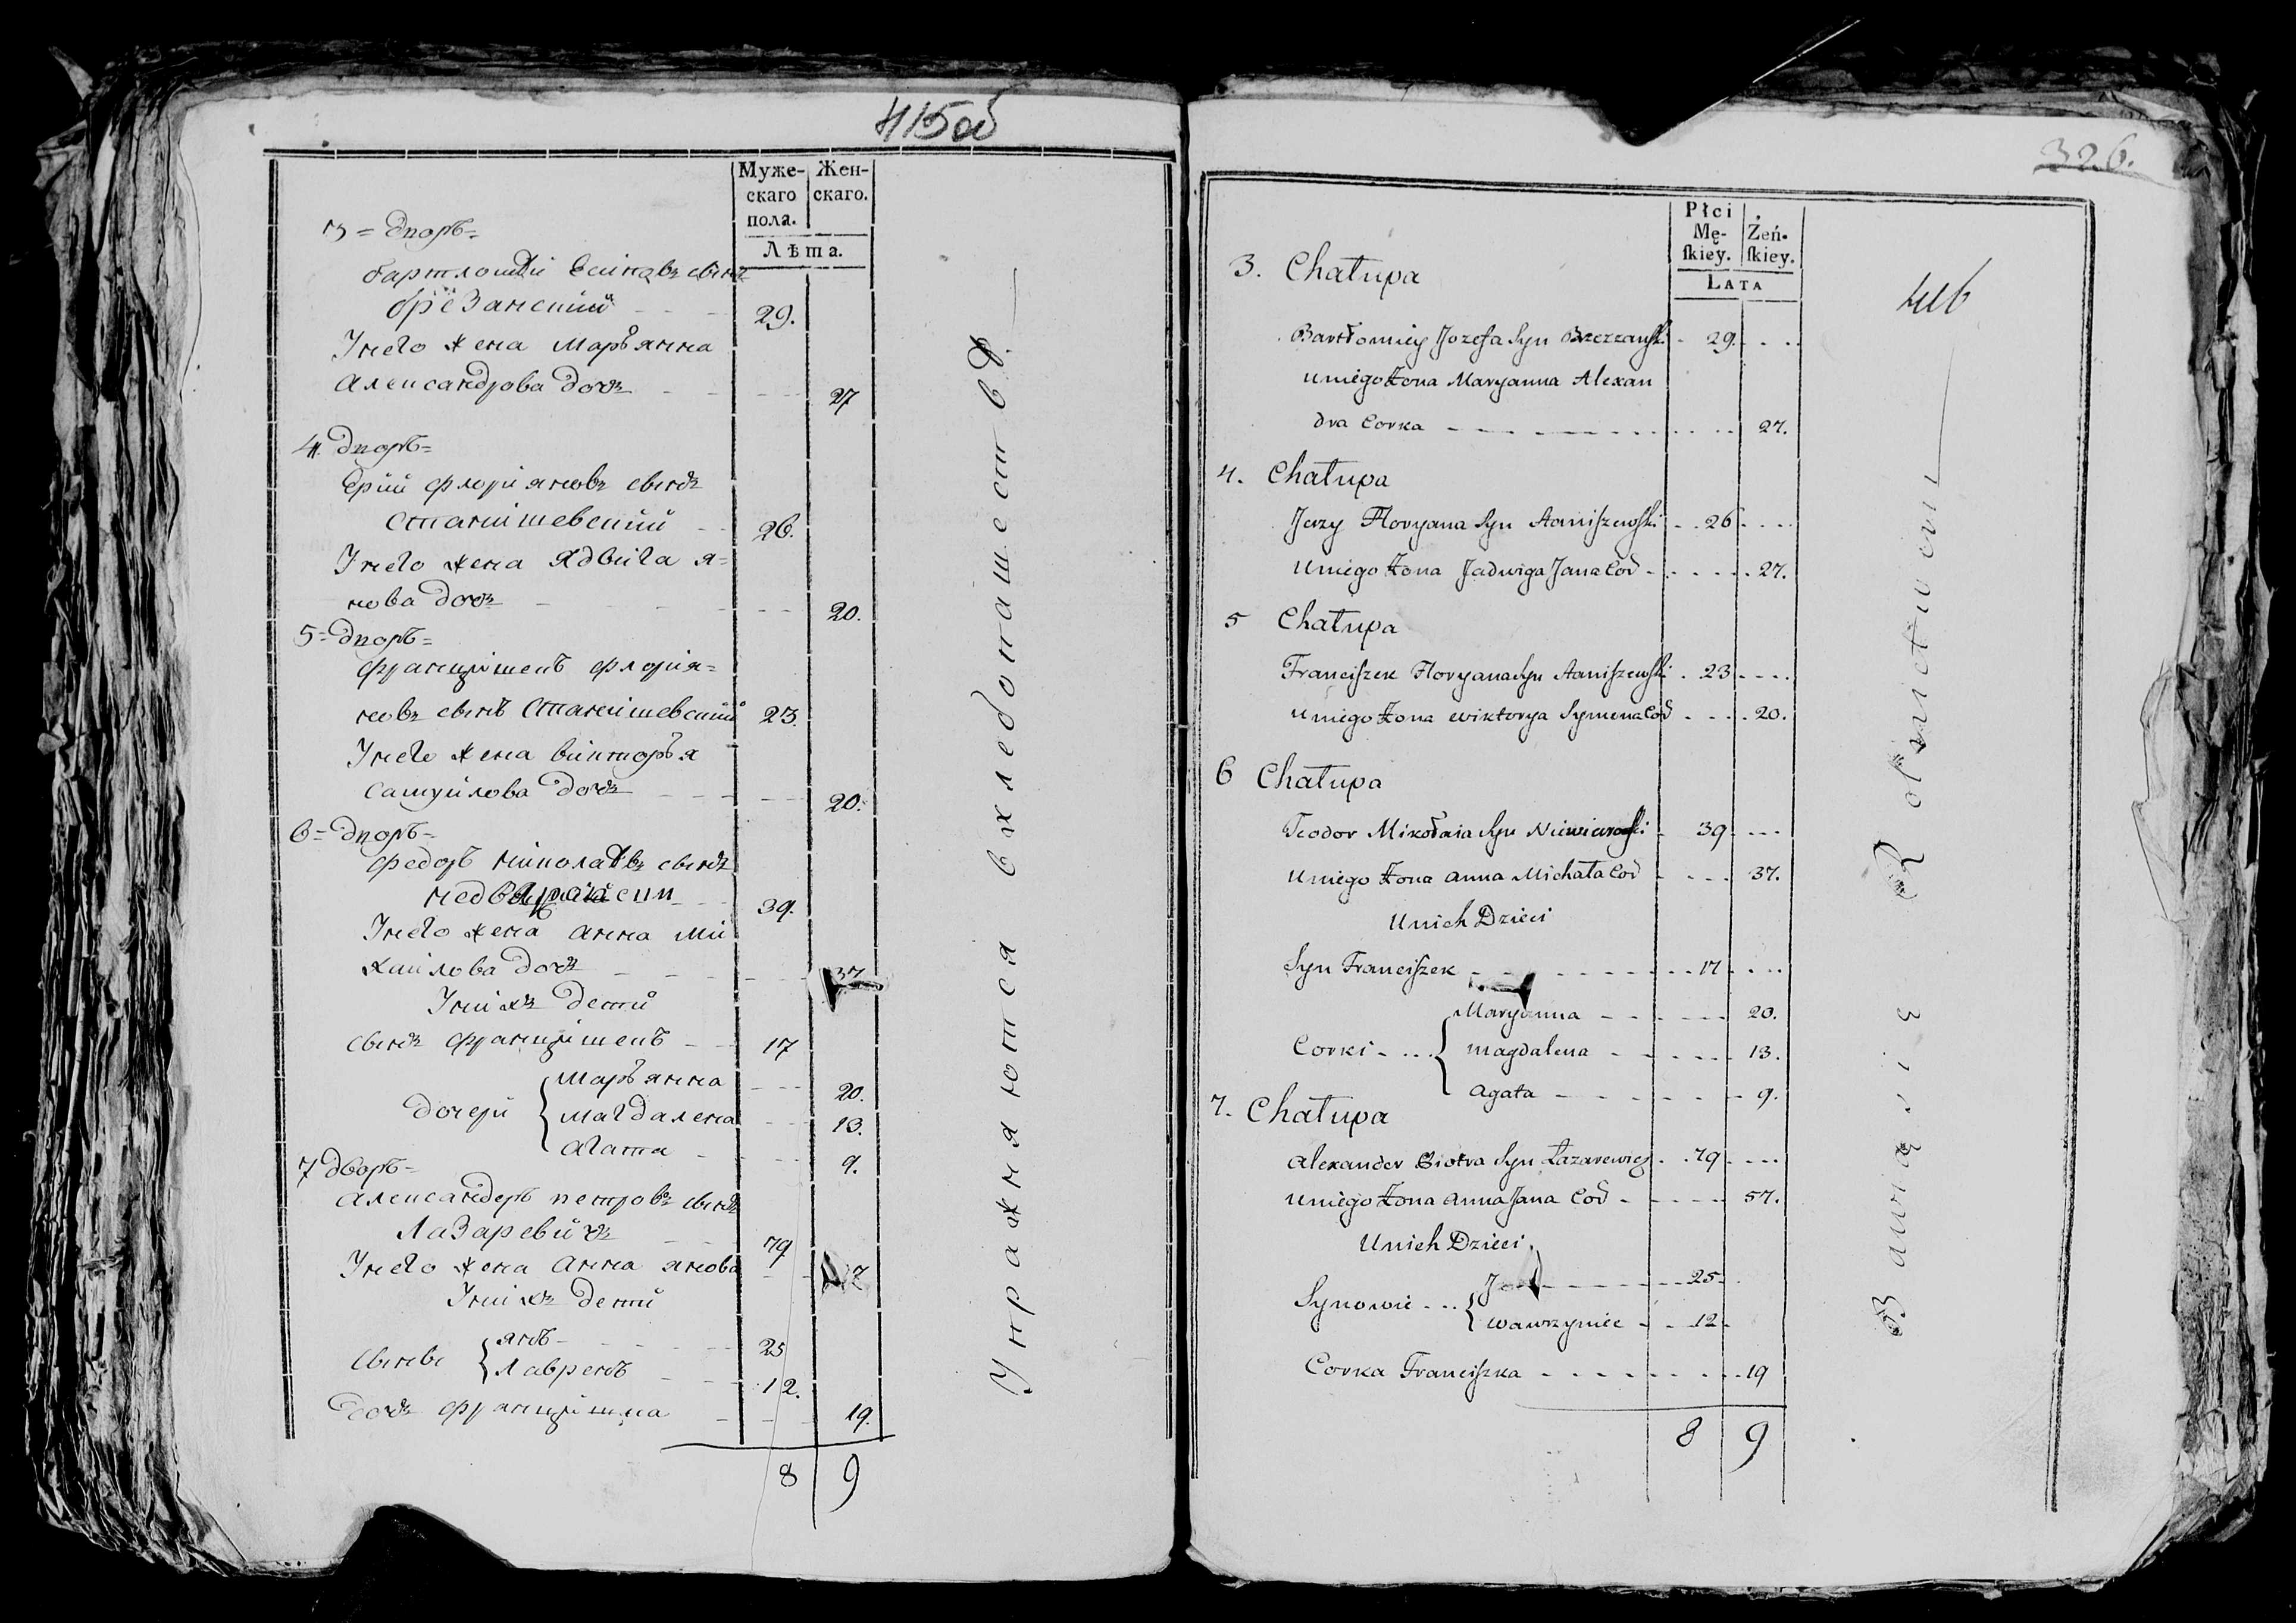 415об
Муже-
скаго
пола.
Жен-
скаго.
Лѣта.
3 = дворъ =
бартломѣй сынъ
брезанский - - 29.
Унего жена маръянна
александрова дочь - - - 27
4. дворъ =
Ерий флориановъ сынъ
станишевский - - 26.
Унего жена Ядвига я=
нова дочь - - - 20.
5 = дворъ =
францишекъ флория=
новъ сынъ станишевский 23.
Унего жена викторъя
самуилова дочь - - - 20.
6 = дворъ =
федоръ николаевъ сынъ
39.
Унего жена анна ми
хаилова дочь - - - 37
Унихъ дети
сынъ францишекъ - - 17
дочери { маръянна - - - 20.
магдалена - - 13.
агата - - - 9.
7 дворъ =
александеръ петровъ сынъ
Лазаревичъ - - 79
Унего жена анна янова - -
Унихъ дети
сынове { янъ - - - 25
Лавренъ - - 12.
дочь францишка - - - 19.
8 9
Упражняются в хледопашестве.
326.
416
Płci
Mę-
ſkiey.
Żeń-
ſkiey.
LATA
3. Chałupa
Bartłomiey Jozefa Syn Brzezanski - 29. . . .
Uniego Żona Maryanna Alexan
dra Corka - - - - - - - - 27.
4. Chałupa
Jerzy Floryana Syn Staniszewski - - 26 . . .
Uniego Żona Jadwiga Jana Cor - - - - - 27.
5 Chałupa
Franciszek Floryana Syn Staniszewski . 23 . . . .
Uniego Żona Wiktorya Symona Cor . - - . 20.
6 Chałupa
Teodor Mikołaia Syn - 39 . . .
Uniego Żona Anna Michała Cor - - - - 37.
Unich Dzieci
Syn Franciszek - - - - - - - 17 . . .
Corki - . . . { Maryanna - - - - - 20.
Magdalena - - - - - 13.
Agata - - - - - - 9.
7. Chałupa
Alexander Piotra Syn Łazarewicz . . 79 . . .
Uniego Żona Anna Jana Cor - - - - - 57.
Unich Dzieci
Synowie - . . . { J - - - - - - 25 .
Wawrzyniec - - . 12 -
Corka Franciszka - - - - - - - . 19
8 9
Bawią się Rolnictwem